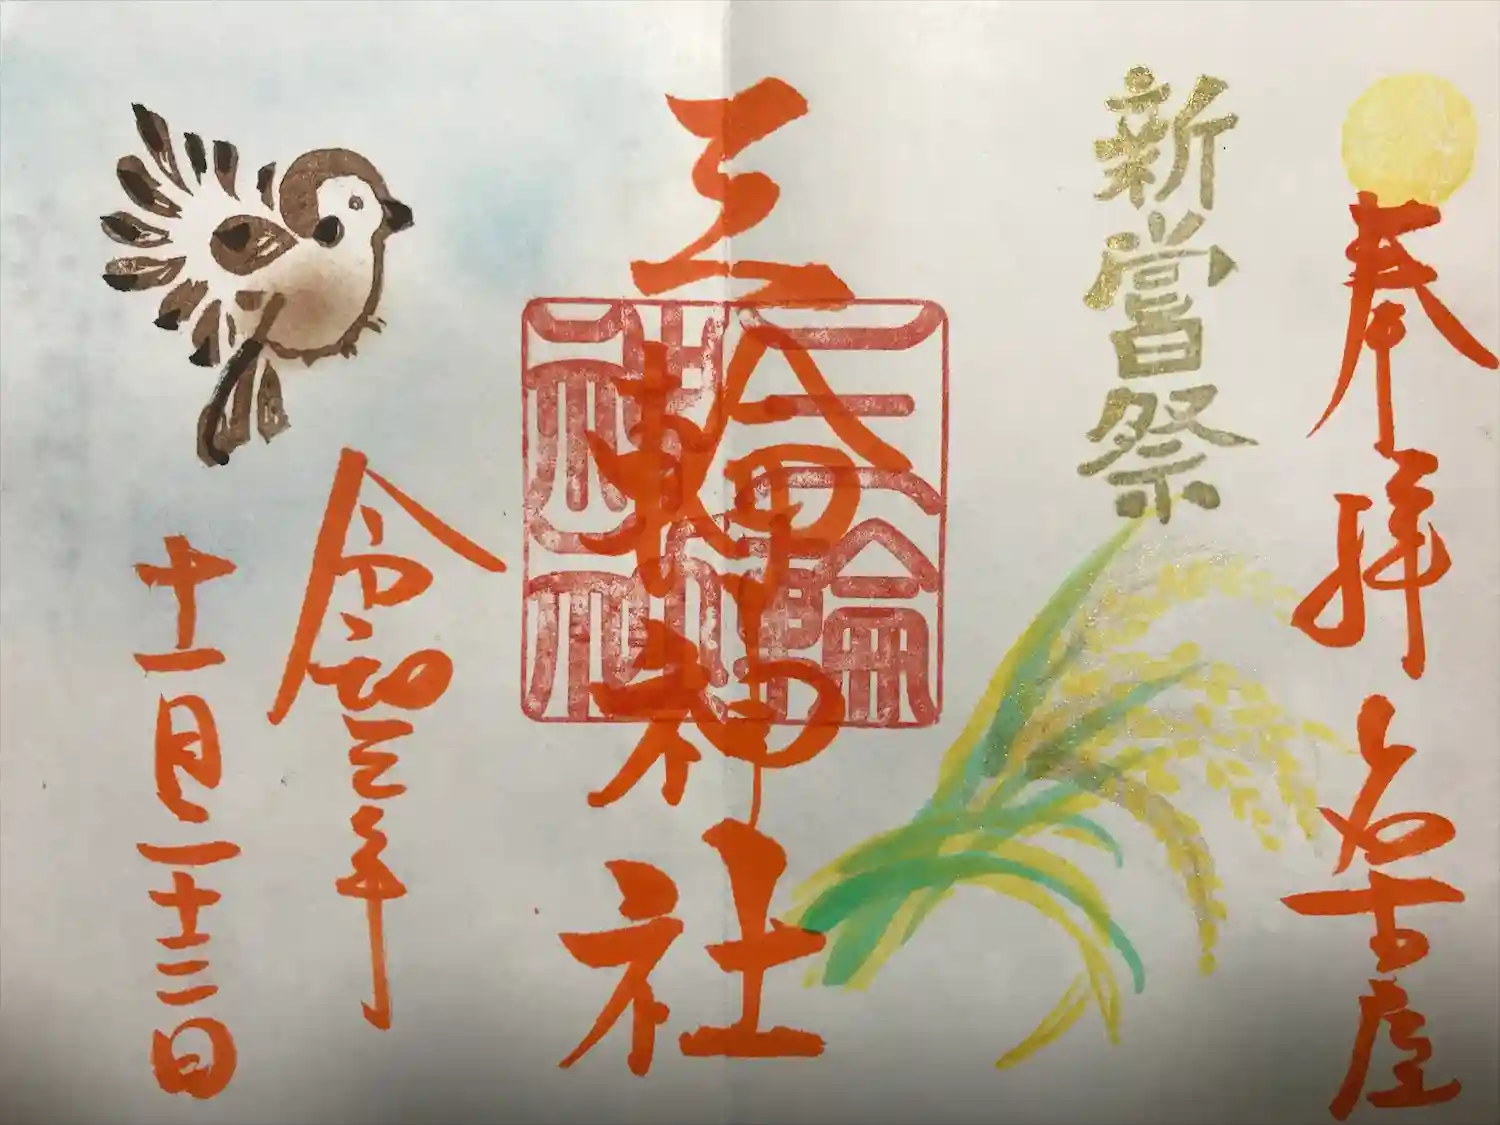 奉拝 名古屋
新嘗祭
三輪神社
令和三年
十一月二十三日